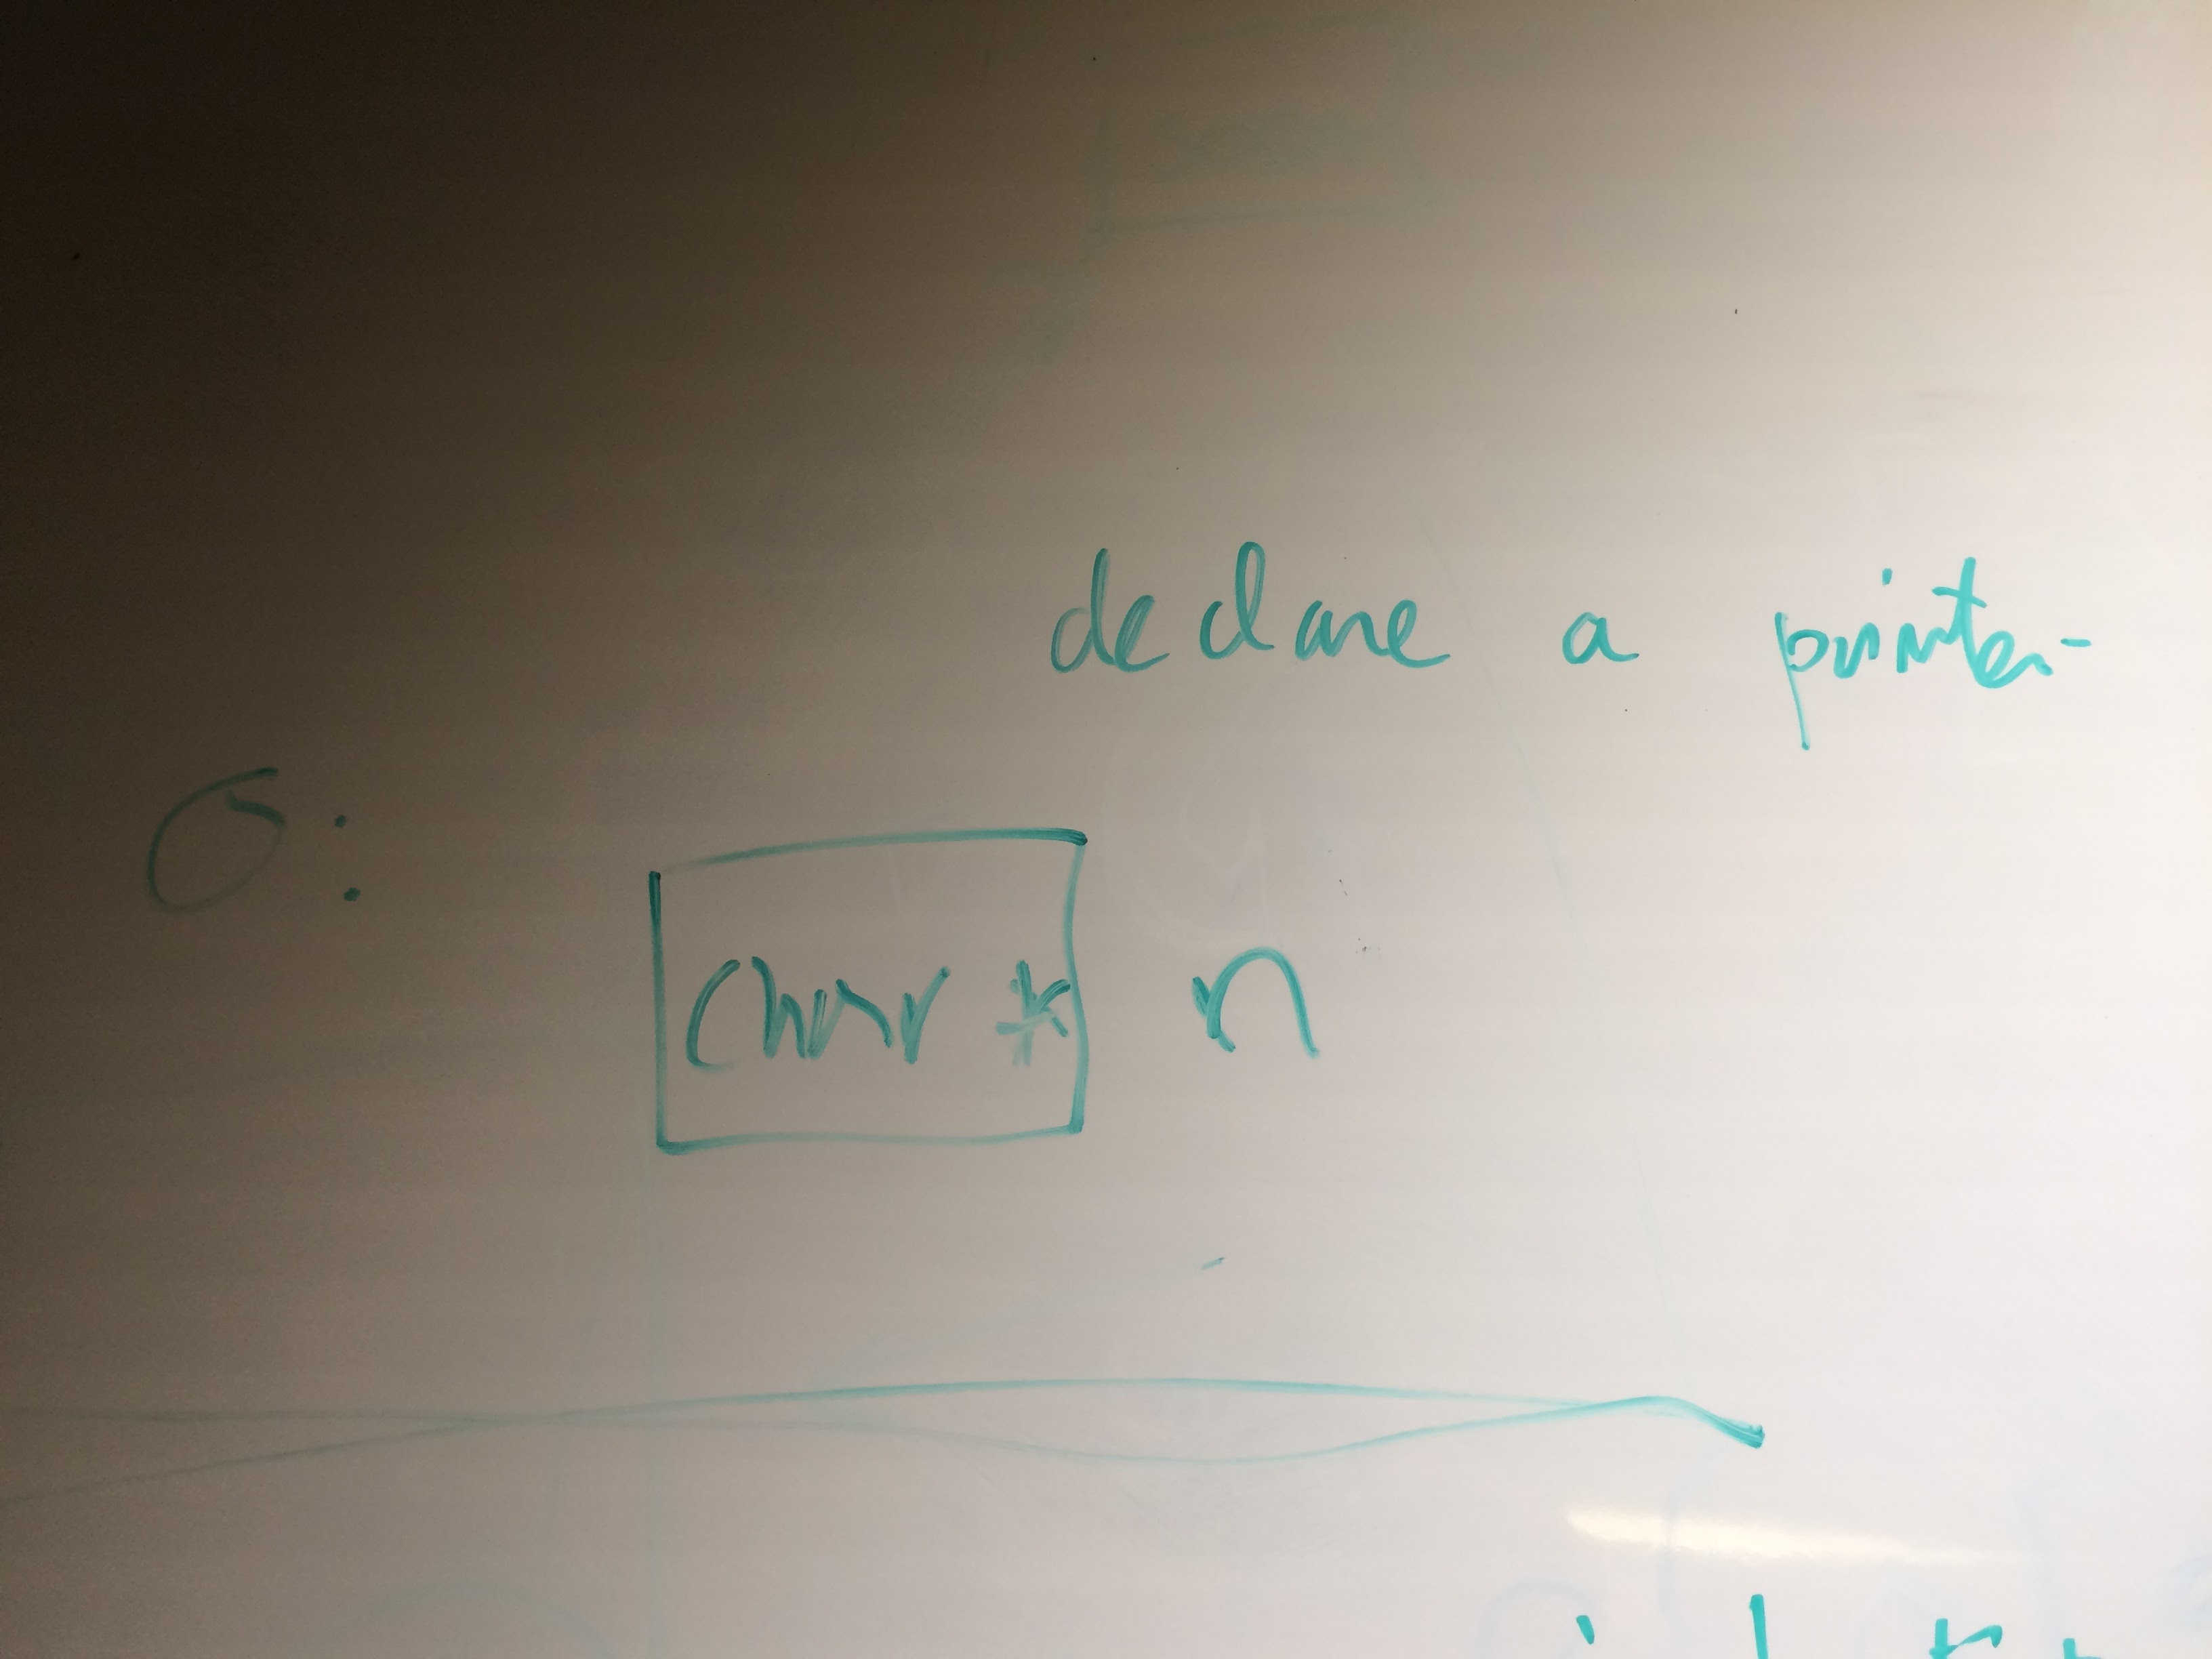 declare a pointer
σ:
char * n